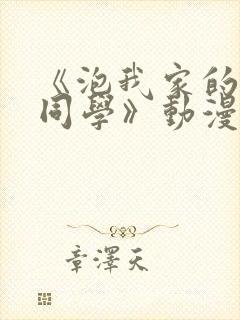 《泡我家的
同學》動漫
章澤天